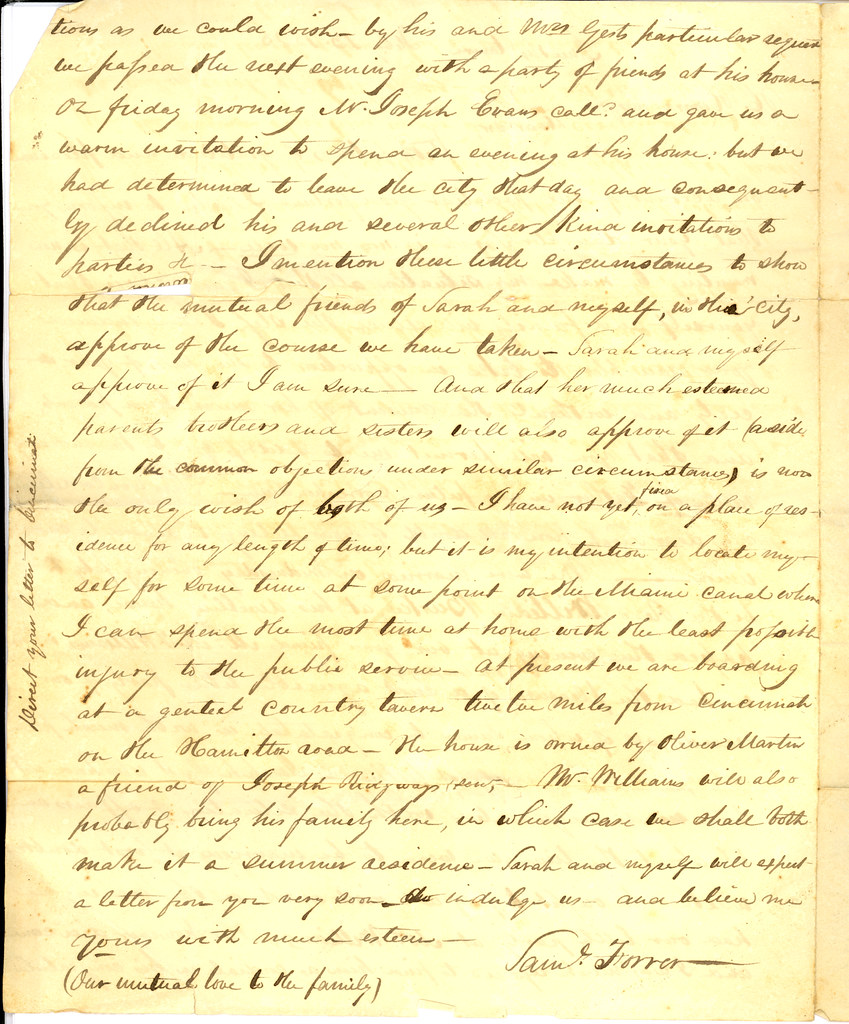 tions as we could wish – by his and Mrs Gests particular request
we passed the next evening with a party of friends at his house –
On friday morning Mr. Joseph Evans call.d and gave us a
warm invitation to spend an evening at his house: but we
had determined to leave the city that day and consequent-
ly declined his and several others kind invitations to
parties &c – I mention these little circumstances to show
that the mutual friends of Sarah and myself, in this city,
approve of the course we have taken – Sarah and myself
approve of it I am sure – And that her much esteemed
parents brothers and sisters will also approve of it (aside
from the common objections under similar circumstances) is now
the only wish of both of us – I have not yet, fixed on a place of res-
idence for any length of time; but it is my intention to locate my-
self for some time at some point on the Miami canal where
I can spend the most time at home with the least possible
injury to the public service – At present we are boarding
at a genteel country tavern twelve miles from Cincinnati
on the Hamilton road – the house is owned by Oliver Martin
a friend of Joseph Ridgways senr, – Mr. Williams will also
probably bring his family here, in which case we shall both
make it a summer residence – Sarah and myself will expect
a letter from you very soon – do indulge us – and believe me
yours with much esteem –
Saml. Forrer
(Our mutual love to the family)
Direct your letter to Cincinnati